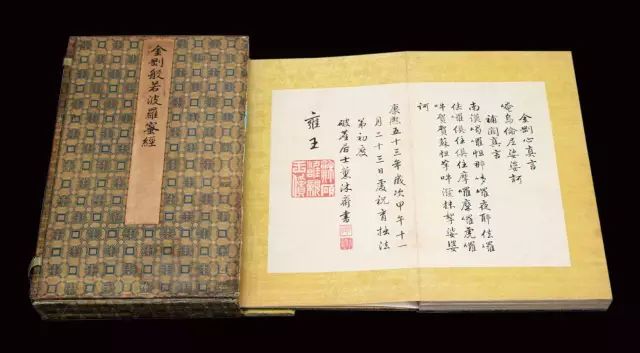 金剛般若波羅蜜經
金剛心真言
唵烏倫尼娑婆訶
補闕真言
南謨喝囉怛那哆囉夜耶佉囉
佉囉俱住俱住摩囉摩囉虎囉
吽賀賀蘇怛拏吽潑抹拏娑婆
訶
康熙五十三年歲次甲午十一
月二十三日慶祝育拙法
第初度
破塵居士薰沐齋書
雍王